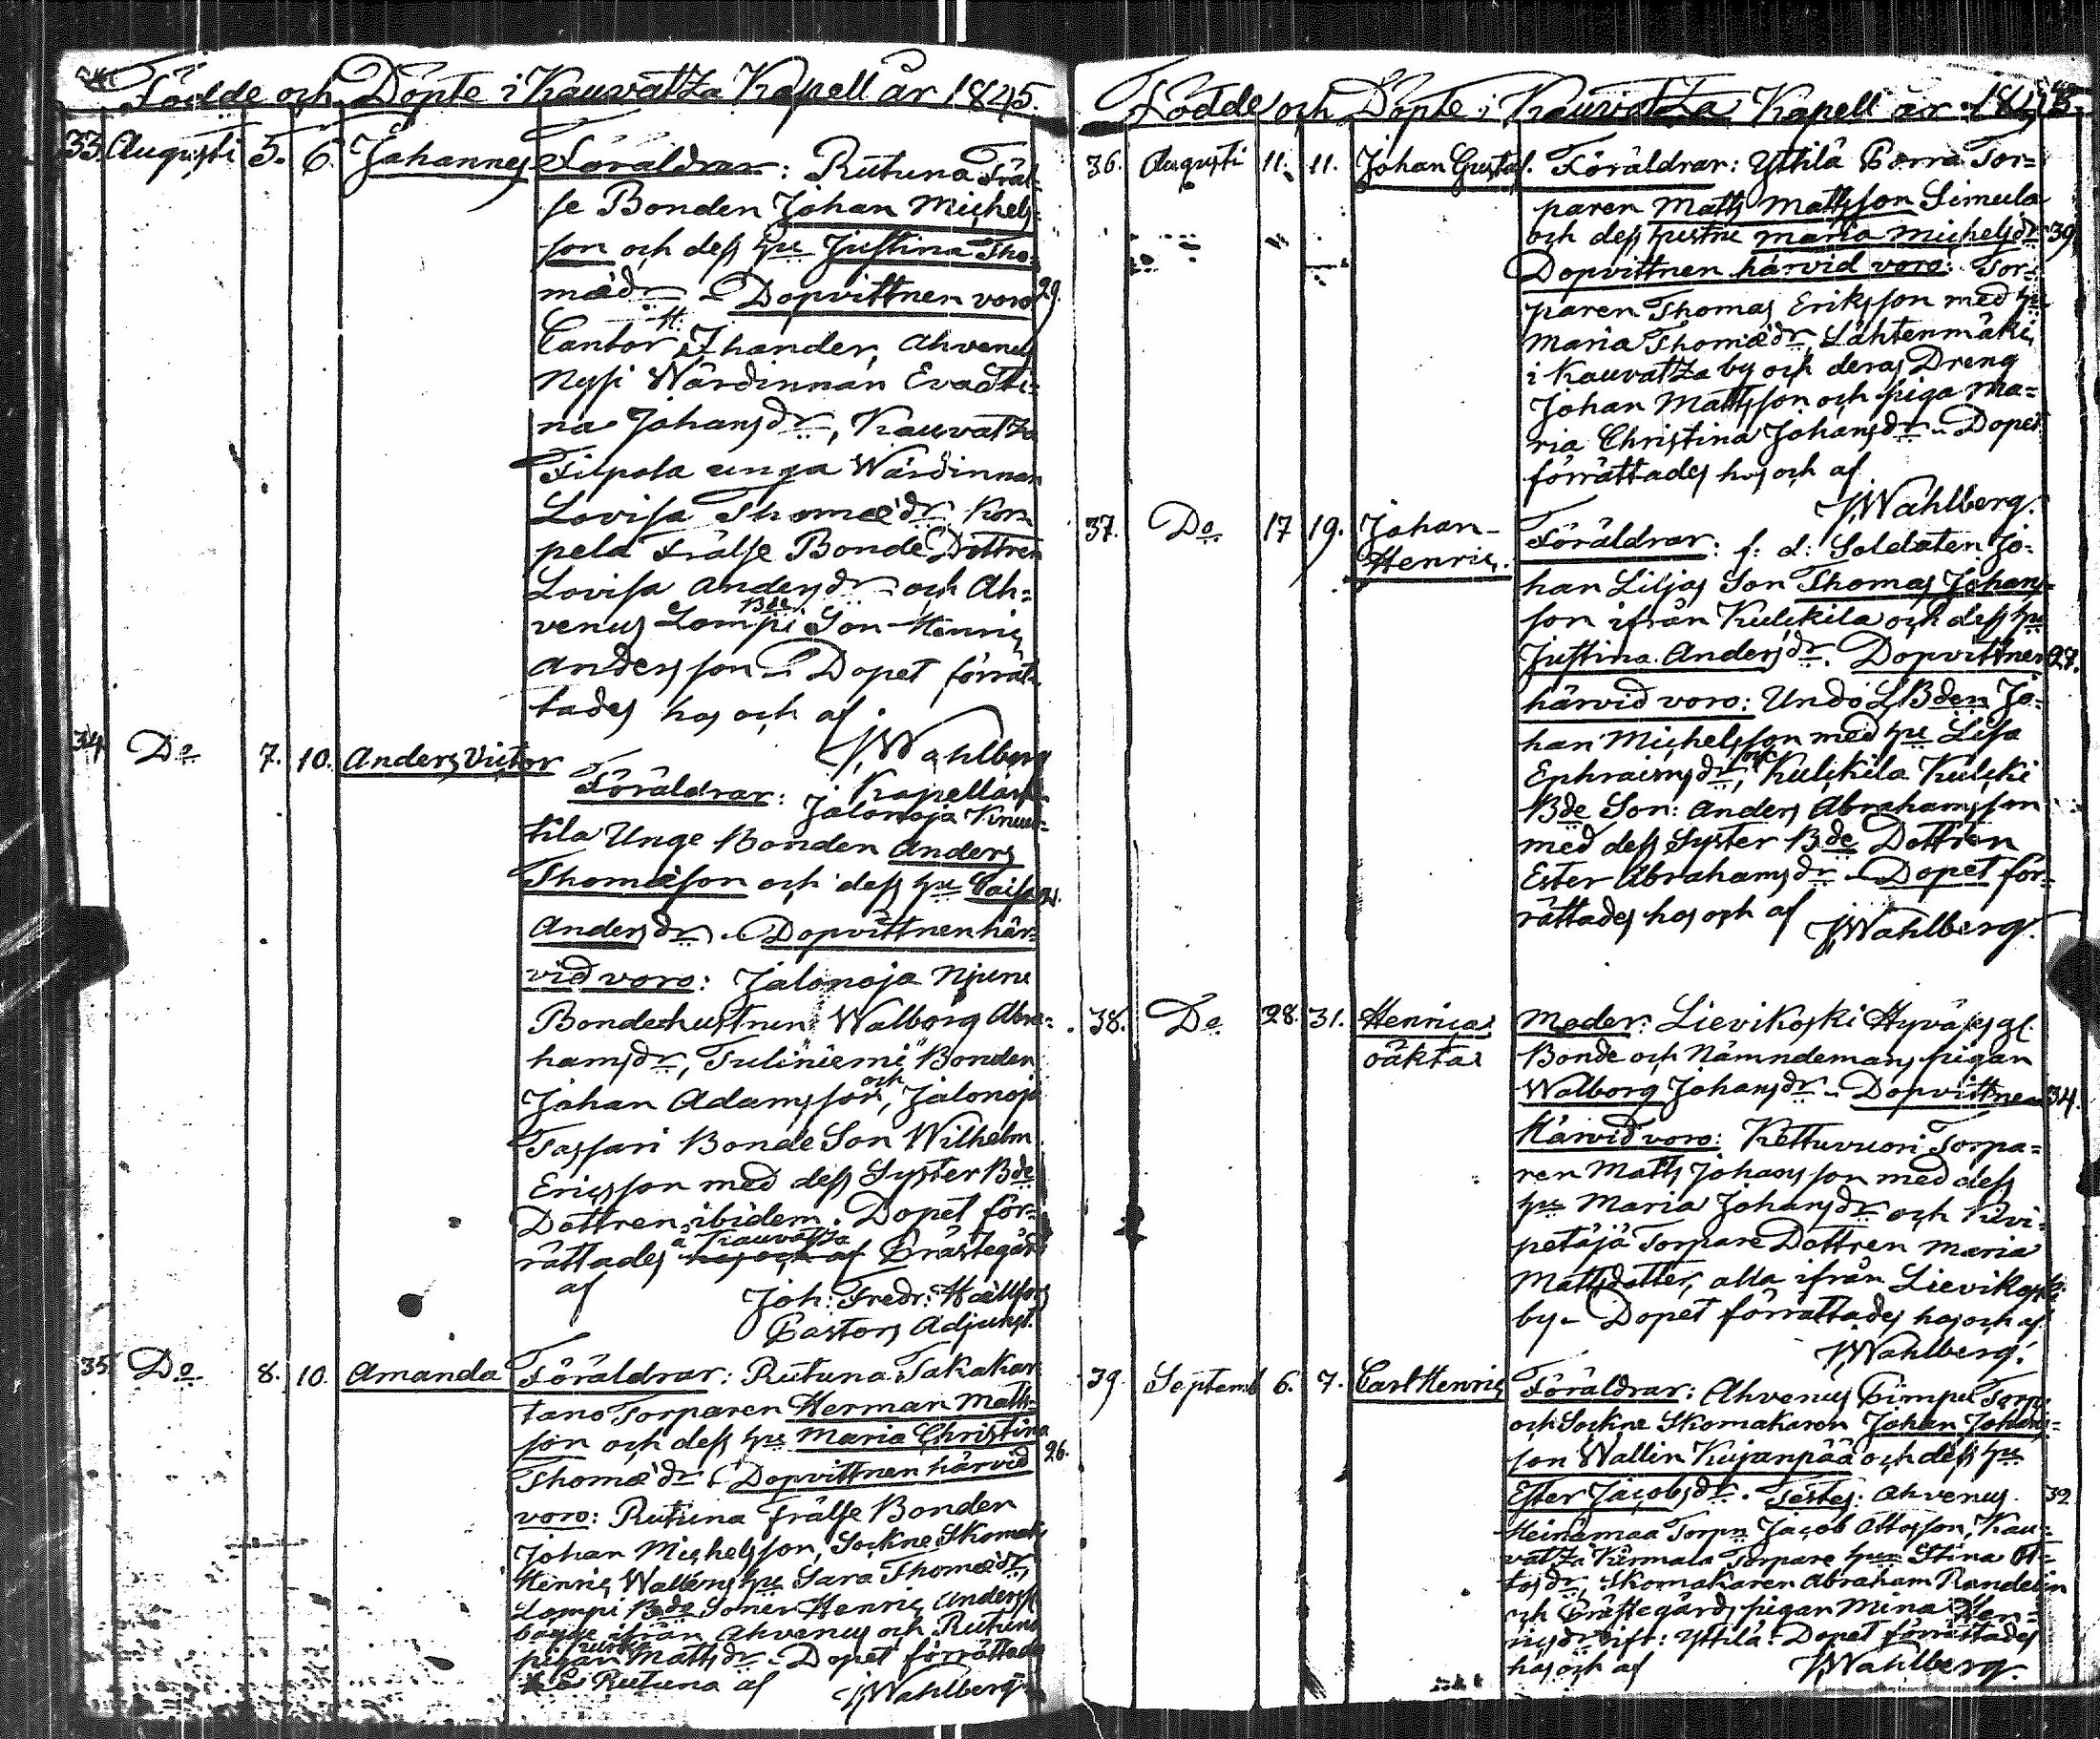 Födde och Döpte i Kauvatza Kapell år 1845.
33. Augusti 5. 6. Johannes Föräldrar: Rutuna Fräl-
se Bonden Johan Michels-
son och dess hu Justina Tho-
mædr Dopvittnen voro 29.
Cantor H. Ihander, Ahvenus
Nysi Värdinnan Eva Sti-
na Johansdr, Kauvatza
Filpola unga Wärdinnan
Lovisa Thomædr, Kor-
pela Frälse Bonde Dottren
Lovisa Andersdr och Ah-
venus Lompi Bde Son Henric
Andersson. Dopet förrät-
tades hos och af
J. Wahlberg
34. Do 7. 10. Anders Victor
Föräldrar: Kapellans
Jalonoja Knuu-
tila Unge Bonden Anders
Thomæson och dess hu Caisa
Andersdr. Dopvittnen här-
vid voro: Jalonoja Njuni
Bondehustrun Walborg Abra-
hamsdr, Tuliniemi Bonden
Johan Adamsson, och Jalonoja
Tassari Bonde Son Wilhelm
Ericsson med dess Syster Bde
Dottren ibidem. Dopet för-
rättades å Kauvatza hos och af Prästegård
af Joh: Fredr: Hællfors
Pastors Adjunct.
35 Do 8. 10. Amanda Föräldrar: Rutuna Takakar-
tano Torparen Herman Matts-
son och dess hu Maria Christina
Thomædr. Dopvittnen härvid 26.
voro: Rutuna Frälse Bonden
Johan Michelsson, Sockne Skomak
Henric Walléns hu Sara Thomædr,
Lompi Bde Sonen Henric Anderss
bägge ifrån Ahvenus och Rutuna
pigan Mattsdr. Dopet förrättades
Rutuna af J. Wahlberg
Födde och Döpte i Kauvatza Kapell år 1845.
36. Augusti 11. 11. Johan Gustaf. Föräldrar: Yttilä Perra Tor-
paren Matts Mattsson Simula
och dess hustru Maria Michelsdr 39.
Dopvittnen härvid voro: Tor-
paren Thomas Eriksson med hu
Maria Thomædr, Lähtenmäki
i Kauvatza by och deras Dreng
Johan Mattsson och piga Ma-
ria Christina Johansdr. Dopet
förrättades hos och af
J. Wahlberg.
37. Do 17 19. Johan
Henric. Föräldrar: f: d: Soldaten Jo-
han Liljas Son Thomas Johans-
son ifrån Kulckila och dess hu
Justina Andersdr. Dopvittnen 27.
härvid voro: Undo L Bden Jo-
han Michelsson med hu Lisa
Ephraimsdr, och Kulckila Kulcki
Bde Son: Anders Abrahamsson
med dess Syster Bde Dottren
Ester Abrahamsdr. Dopet för-
rättades hos och af J. Wahlberg.
38. Do 28. 31. Henrica Moder: Lievikoski Hyväss gl.
oäkta Bonde och Nämndemans pigan
Walborg Johansdr. Dopvittnen 34.
härvid voro: Kettuvuori Torpa-
ren Matts Johansson med dess
hu Maria Johansdr och Kivi-
petäjä Torpare Dottren Maria
Mattsdotter, alla ifrån Lievikoski
by. Dopet förrättades hos och af
J. Wahlberg.
39. Septemb 6. 7. Carl Henric Föräldrar: Ahvenus Pimpu Torp
och Sockne Skomakaren Johan Johans-
son Wallin Kujanpää och dess hu
Ester Jacobsdr. Testes: Ahvenus 32
Heinämaa Torpn Jacob Ottosson, Kau-
vatza Kärmala Torpare hun Stina Ot-
tosdr, Skomakaren Abraham Randelin
och Prästegårds pigan Mina Hen-
ricsdr ift: Yttilä. Dopet förrättades
hos och af J. Wahlberg.